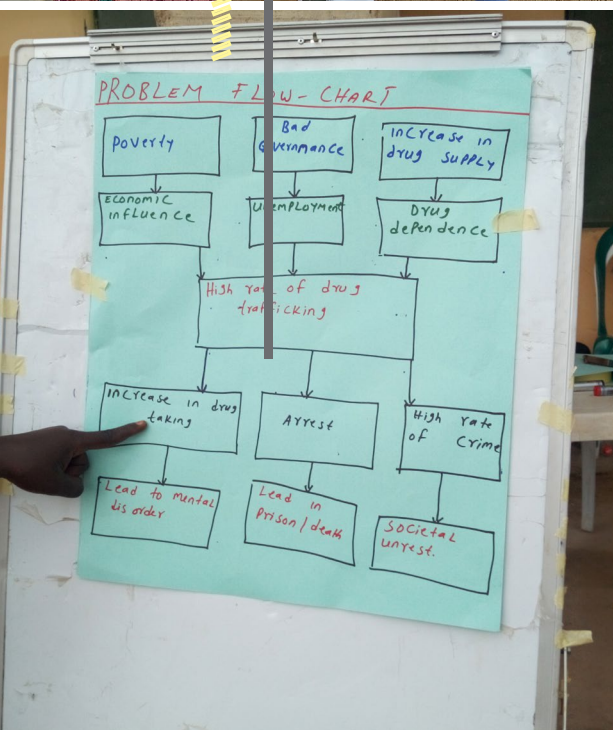 PROBLEM FLOW-CHART
Poverty
Bad
Governance
increase in
drug supply
ECONOMIC
influence
UNEMPLOYMENT
Drug
dependence
High rate of drug
trafficking
increase in drug
taking
Arrest
High rate
of Crime
Lead to mental
disorder
Lead in
Prison/death
Societal
unrest.